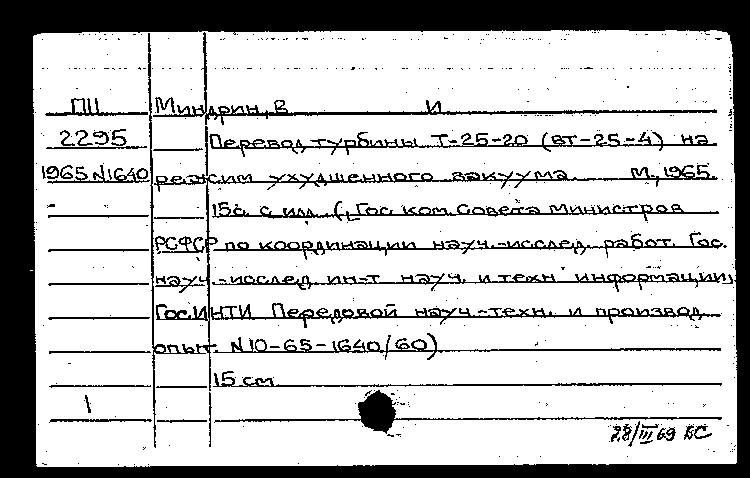 ПП Миндрин, В И
2295 Перевод турбины Т-25-20 (ВТ-25-4) на
1965 N1640 режим ухудшенного вакуума М., 1965.
15с. с илл. (Гос. ком. Совета Министров
РСФСР по координации науч.-исслед. работ. Гос.
науч.-исслед. ин-т науч. и техн информации
ГосИНТИ Передовой науч.-техн. и производ
опыт. N10-65-1640/60)
15 см
1
28/III 69 БС